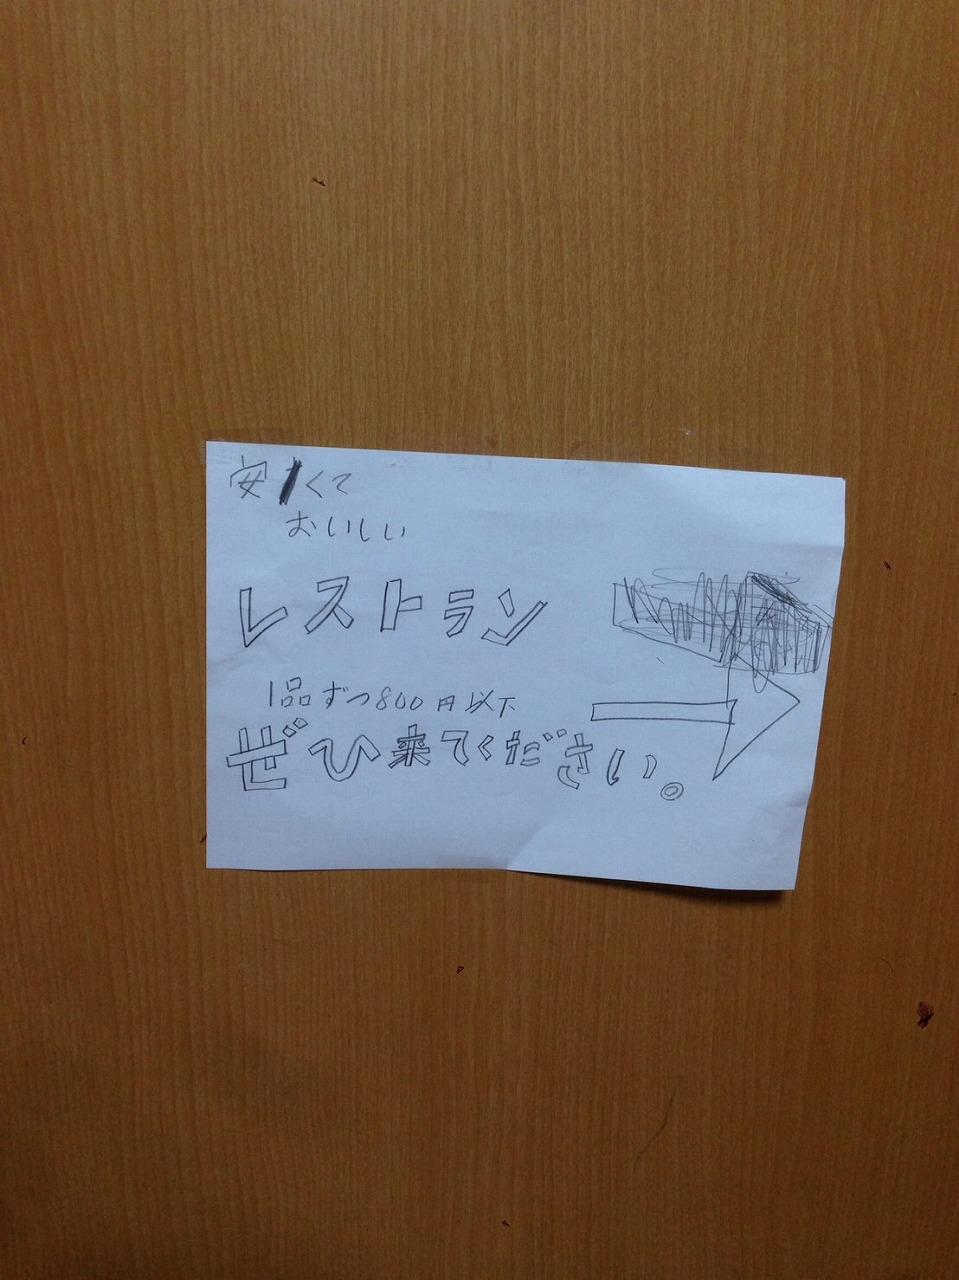 安くて
おいしい
レストラン
1品ずつ800円以下
ぜひ来てください。